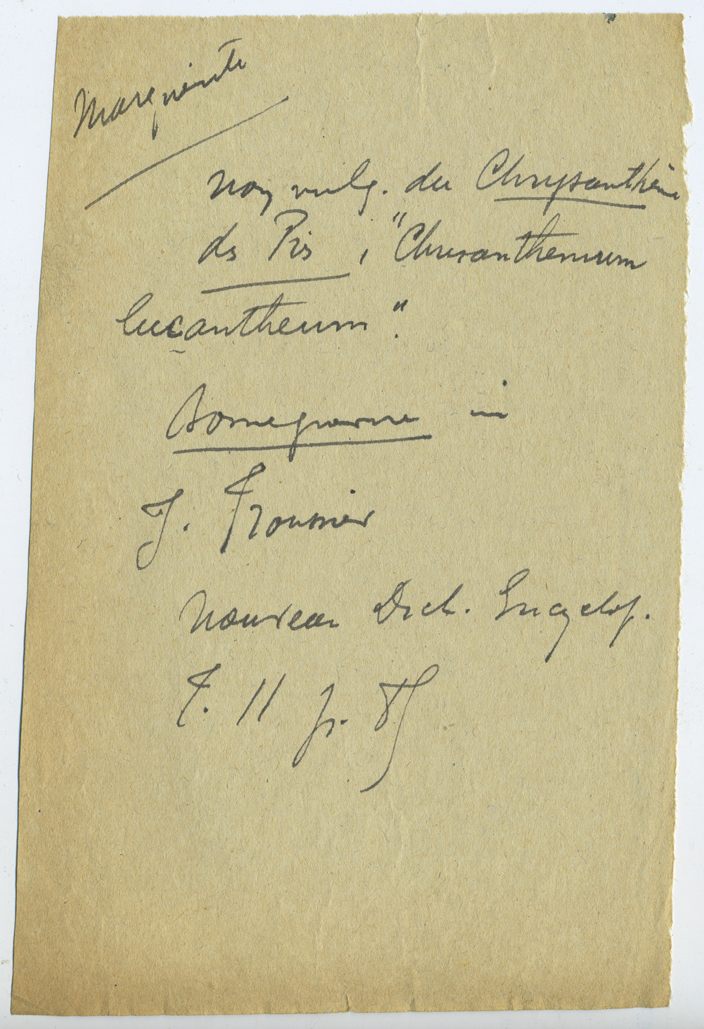 Marguerite
nom vulg. du Chrysanthème
des Prés, "Chrysanthemum
leucanthemum".
in
J. Trousset
Nouveau Dict. Encyclop.
T. II p.